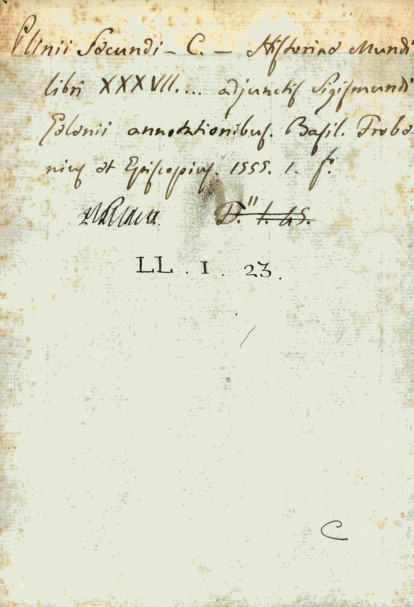 Plinii Secundi - C. - Historiae Mundi
libri XXXVII.... adjunctis Sigismundi
Gelenii annotationibus. Basil. Frobe-
nius et Episcopius. 1555. 1. fº.
D." 1. 45.
LL . I . 23.
C